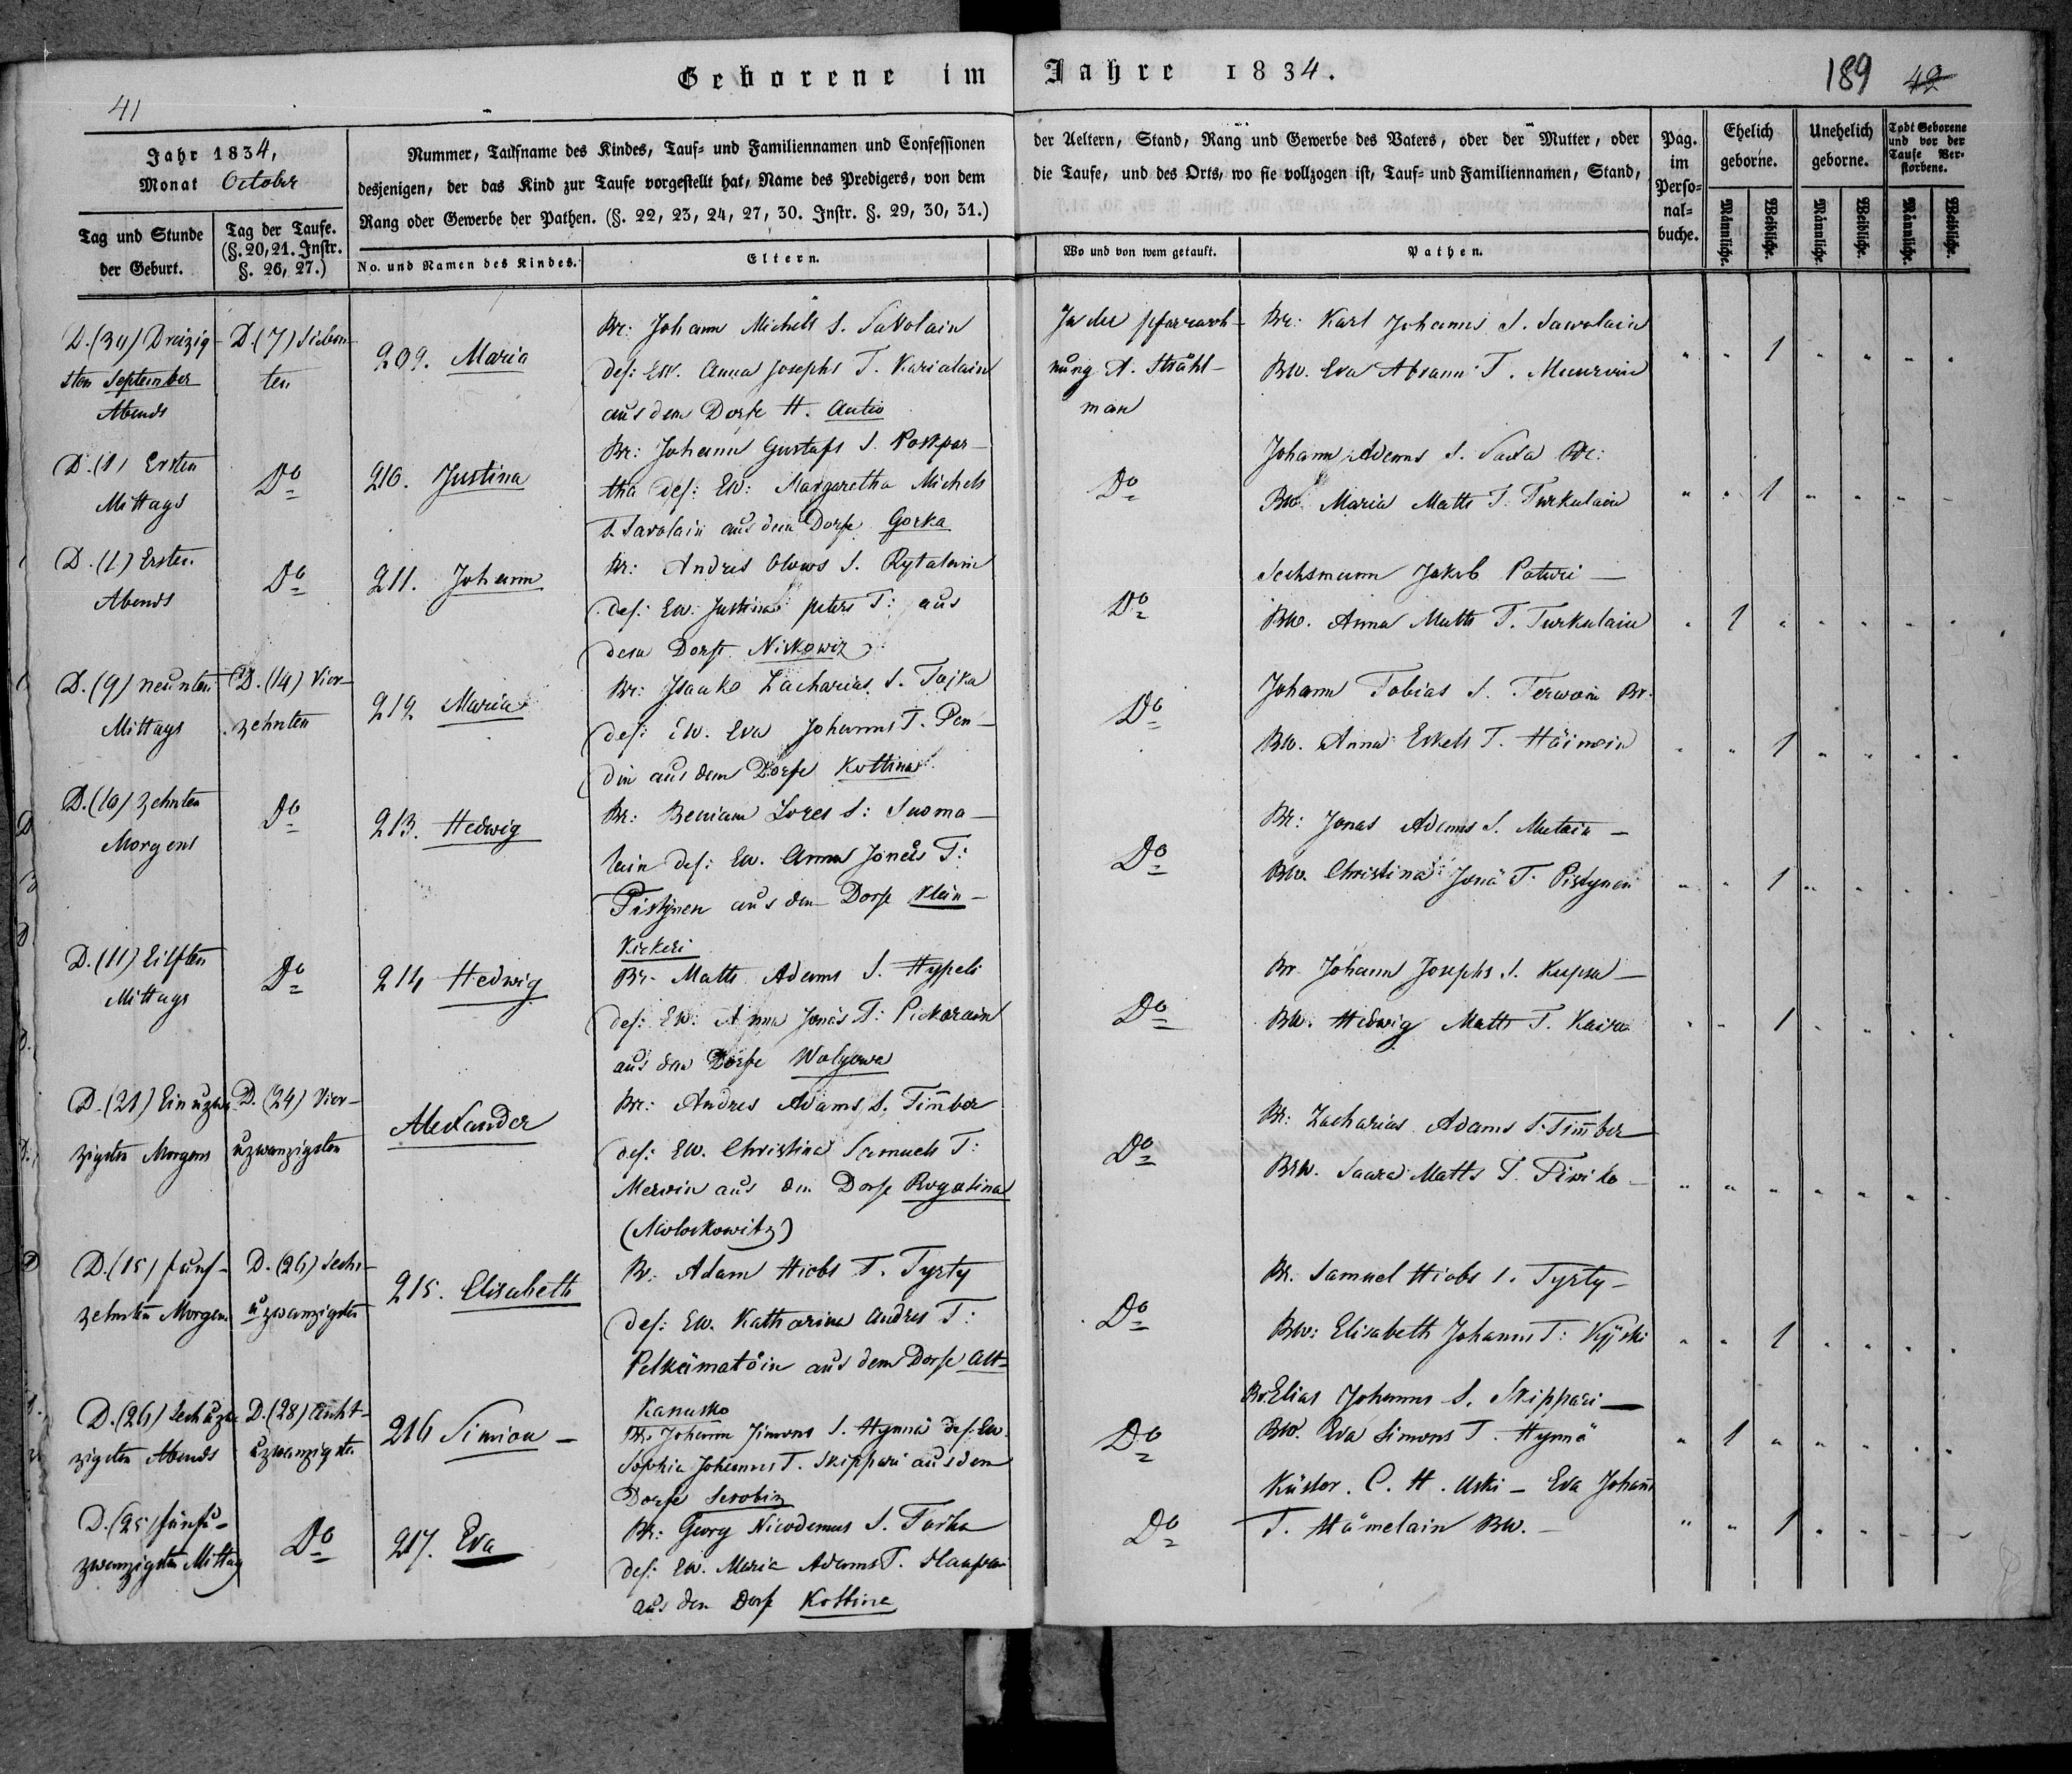 Geborene im Jahre 1834.
41
189 42
Jahr 1834,
Monat October
Tag und Stunde
der Geburt.
Tag der Taufe.
(§.20,21. Instr.
§. 26, 27.)
Nummer, Taufname des Kindes, Tauf- und Familiennamen und Confessionen
desjenigen, der das Kind zur Taufe vorgestellt hat, Name des Predigers, von dem
Rang oder Gewerbe der Pathen. (§. 22, 23, 24, 27, 30. Instr. §. 29, 30, 31.)
No. und Namen des Kindes.
Eltern.
der Aeltern, Stand, Rang und Gewerbe des Vaters, oder der Mutter, oder
die Taufe, und des Orts, wo sie vollzogen ist, Tauf- und Familiennamen, Stand,
Wo und von wem getauft.
Pathen.
Pag.
im
Perso-
nal-
buche.
Ehelich
geborne.
Unehelich
geborne.
Todt Geborene
und vor der
Taufe Ver-
storbene.
Männliche.
Weibliche.
Männliche.
Weibliche.
Männliche.
Weibliche.
D. (30) Dreizig-
sten September
Abends
D. (7) Sieben-
ten
209. Maria
Br: Johann Michels S. Savolain
des: EW. Anna Josephs T. Karialain
aus dem Dorfe H. Autio
In der Pfarrwoh-
nung A. Stråhl-
man
Br: Karl Johanns S. Sawolain
BW. Eva Abrams T.
1
D. (1) Ersten
Mittags
Do
210. Justina
Br: Johann Gustafs S. Poskpar-
tha des: EW: Margaretha Michels
T. Savolain aus dem Dorfe Gorka
Do
Johann Adams S. Saxa Br:
BW. Maria Matts T. Turkulain
1
D. (1) Ersten
Abends
Do
211. Johann
Br: Andres Olows S. Rytalain
des: EW: Justina Peters T: aus
dem Dorfe Niskowiz
Do
Sechsmann Jakob Paturi —
BW. Anna Matts T. Turkulain
1
D. (9) neunten
Mittags
D. (14) Vier-
zehnten
212 Maria
Br: Isaaks Zacharias S. Tojka
des: EW. Eva Johanns T. Pen-
din aus dem Dorfe Kottina
Do
Johann Tobias S. Terwoin Br.
BW. Anna Eskels T. Häiwoin
1
D. (10) zehnten
Morgens
Do
213. Hedwig
Br: Beniam Lores S: Suoma-
lain des: EW. Anna Jonäs T:
Pistynen aus dem Dorfe Klein-
Kickeri
Do
Br: Jonas Adams S. Mutain —
BW. Christina Jonä T. Pistynen
1
D. (11) Eilften
Mittags
Do
214 Hedwig
Br. Matts Adams S. Hypeli
des: EW: Anna Jonäs T: Pickarain
aus dem Dorfe Wolgowa
Do
Br. Johann Josephs S. Kupsa —
BW. Hedwig Matts T. Kaira
1
D. (21) Einuzwan-
zigsten Morgens
D. (24) Vier-
uzwanzigsten
Alexander
Br: Andres Adams S. Tim̄ber
des: EW. Christina Samuels T:
Merwin aus dem Dorfe Rogatina
(Moloskowitz)
Do
Br: Zacharias Adams S. Tim̄ber
BW. Saara Matts T. Tiwiko —
D. (15) fünf-
zehnten Morgens
D. (26) Sechs-
uzwanzigsten
215. Elisabeth
Br: Adam Hiobs S. Tyrty
des: EW. Katharina Andres T:
Pelkämatöin aus dem Dorfe Alt-
Kanusko
Do
Br. Samuel Hiobs S. Tyrty —
BW: Elisabeth Johanns T: Kyiski
1
D. (26) Sechsuzwan-
zigsten Abends
D. (28) Acht-
uzwanzigsten
216 Simion —
Br: Johann Simons S. Hynnä des: EW
Sophia Johanns T. Skippari aus dem
Dorfe Serobiz
Do
Br. Elias Johanns S. Skippari —
BW. Eva Simons T. Hynnä
1
D. (25) fünfu-
zwanzigsten Mittag
Do
217. Eva
Br: Georg Nicodemus S. Toika
des: EW. Maria Adams T.
aus dem Dorfe Kottina
Do
Küster. C. H. Uski — Eva Johan̄s
T. Hämelain BW. —
1